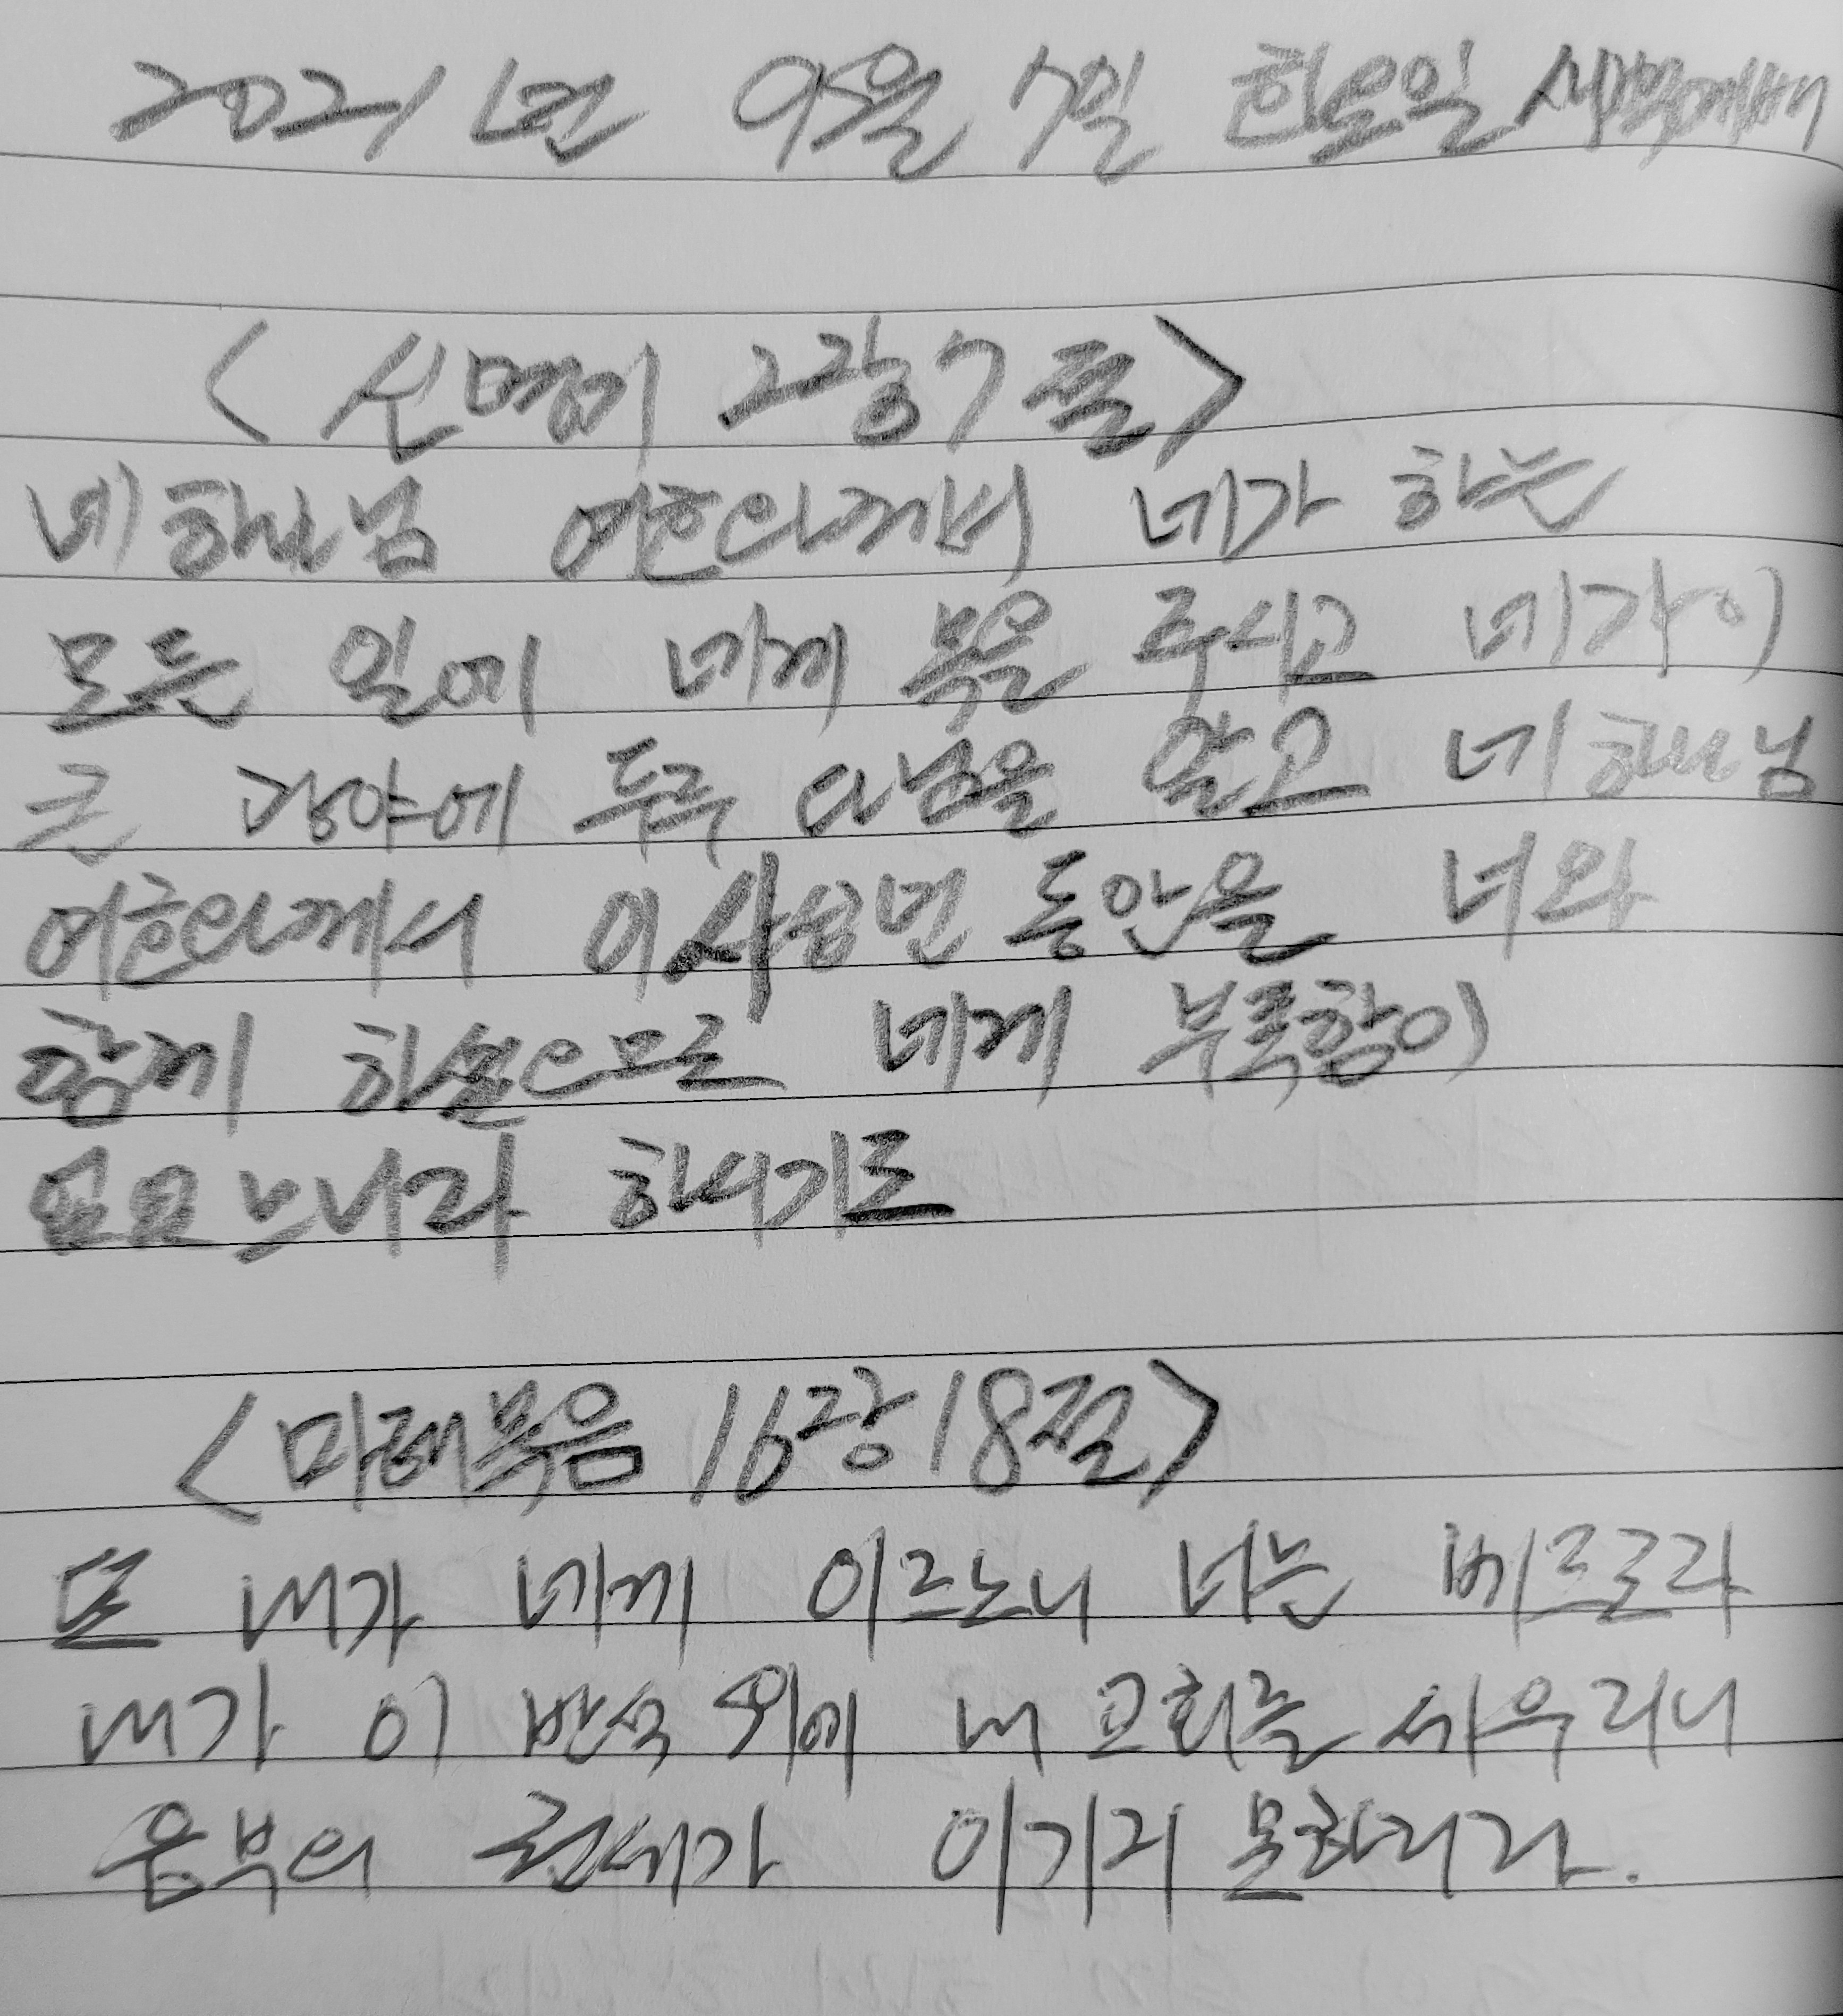 2021년 9월 7일 화요일 새벽예배
< 신명기 2장 7절 >
네 하나님 여호와께서 네가 하는
모든 일에 네게 복을 주시고 네가 이
큰 광야에 두루 다님을 알고 네 하나님
여호와께서 이 사십년 동안을 너와
함께 하셨으므로 네게 부족함이
느니라 하시기로
< 마태복음 16장 18절 >
또 내가 네게 이르노니 너는 베드로라
내가 이 반석 위에 내 교회를 세우리니
음부의 권세가 이기지 못하리라.